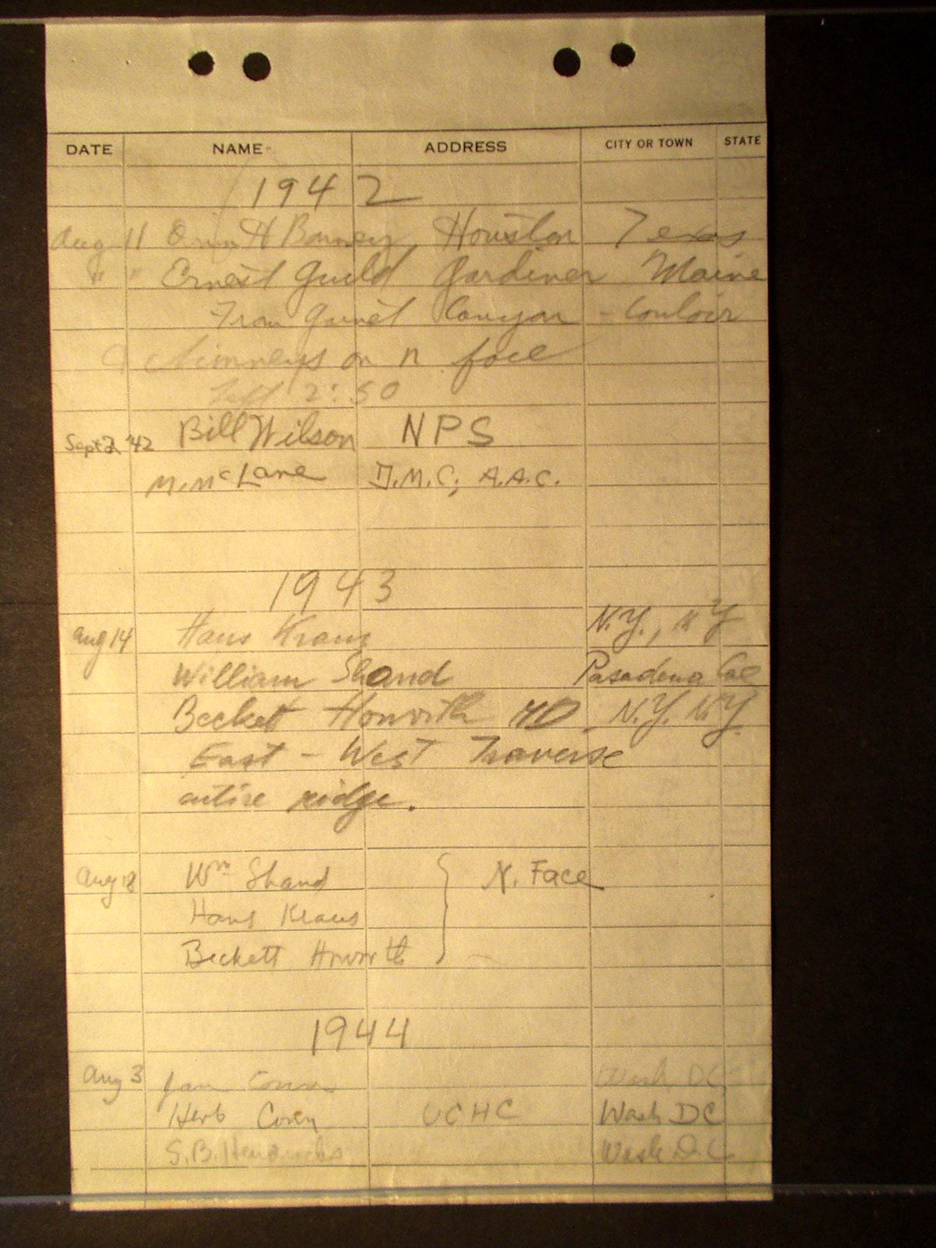 DATE NAME ADDRESS CITY OR TOWN STATE
1942
Aug 11 Orrin H Bonney, Houston Texas
" " Ernest Guild Gardiner Maine
From Garnet Canyon - Couloir
chimneys on n face
Left 2:50
Sept 2, '42 Bill Wilson NPS
M. McLane D.M.C; A.A.C.
1943
Aug 14 Hans Kraus N.Y., N Y
William Shand Pasadena Cal
Beckett Howorth MD N.Y. N.Y.
East - West Traverse
entire ridge.
Aug 18 Wm Shand N. Face
Hans Kraus
Beckett Howorth
1944
Aug 3 Jan Conn Wash DC
Herb Conn UCHC Wash DC
S.B. Hendricks Wash D.C